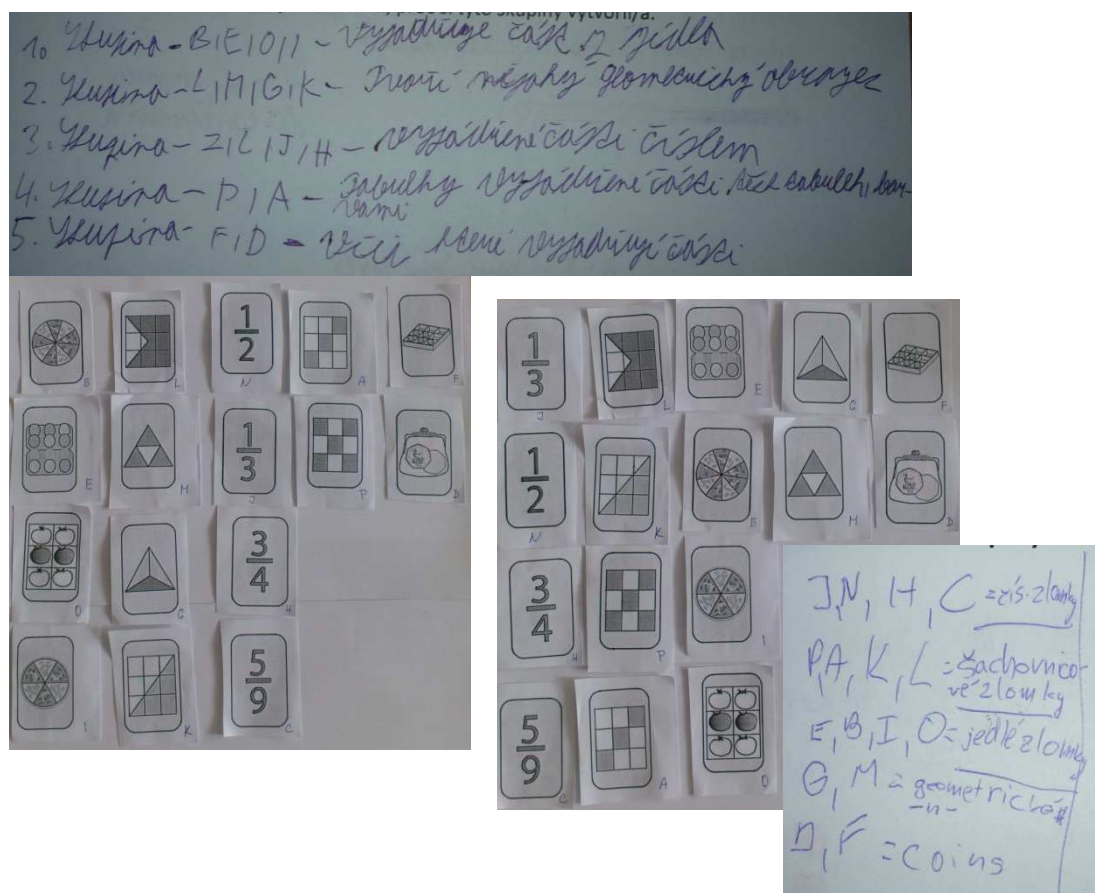 1. Skupina - B, E, O, I - vyjadřuje část z jídla
2. Skupina - L, M, G, K - Tvoří nějaký geometrický obrazec
3. Skupina - N, C, J, H - vyjádření části číslem
4. Skupina - P, A - tabulky vyjádření části těch tabulek, barvami
5. Skupina - F, D - Věci které vyjadřují části
1/2
1/3
3/4
5/9
B
L
N
A
F
E
M
J
P
D
O
G
H
I
K
C
1/3
1/2
3/4
5/9
J
L
E
G
F
N
K
B
M
D
H
P
I
C
A
O
J, N, H, C = čís. zlomky
P, A, K, L = šachovnico-
vé zlomky
E, B, I, O = jedlé zlomky
G, M = geometrické
-n-
D, F = coins